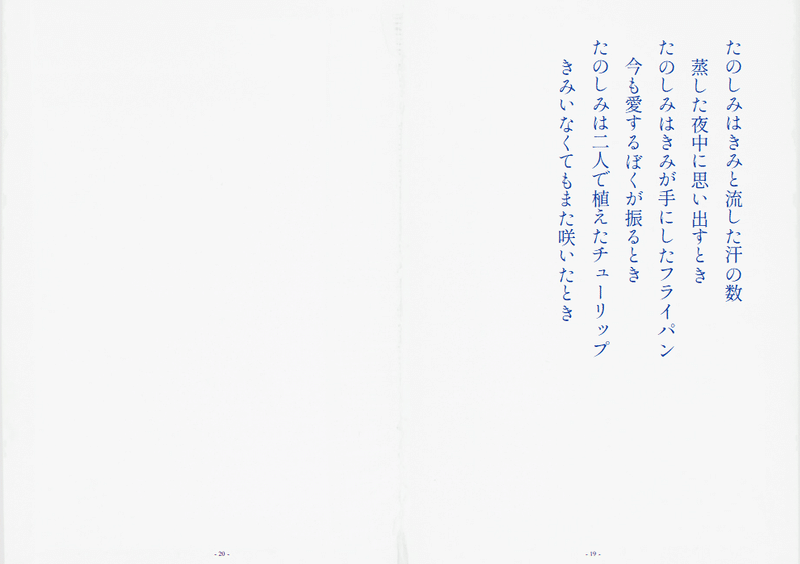 たのしみはきみと流した汗の数
蒸した夜中に思い出すとき
たのしみはきみが手にしたフライパン
今も愛するぼくが振るとき
たのしみは二人で植えたチューリップ
きみいなくてもまた咲いたとき
- 19 -
- 20 -